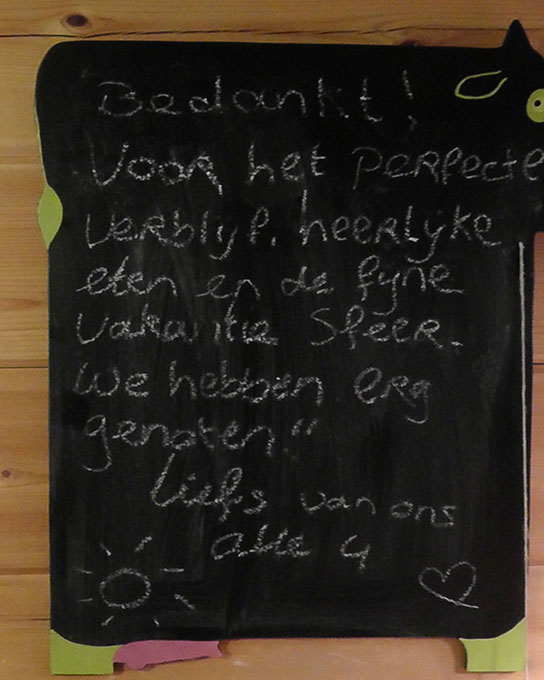 Bedankt!
Voor het perfecte
verblijf. heerlijke
eten en de fijne
vakantie sfeer.
We hebben erg
genoten!!
Liefs van ons
alle 4